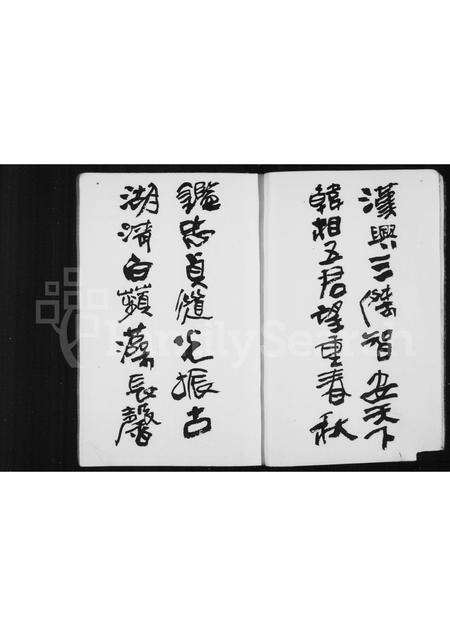 漢興三傑智安天下
韓相五君望重春秋
鑑忠貞儘光振古
湖清白蘋藻長馨
FamilySearch